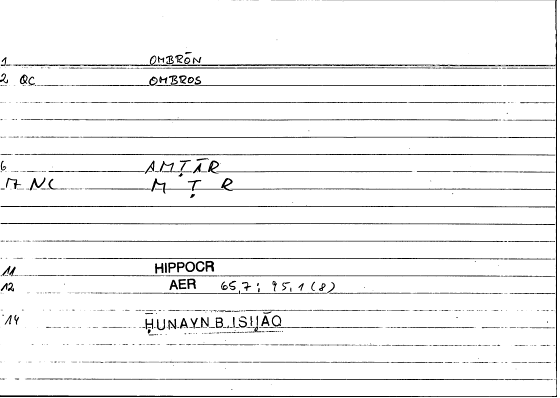 1 OMBRŌN
2 QC OMBROS
6 AMṬĀR
17 NC M Ṭ R
11 HIPPOCR
12 AER 65,7; 95,1 (8)
14 ḤUNAYN B. ISḤĀQ